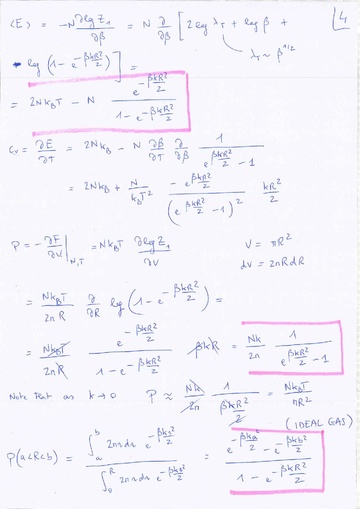 ⟨E⟩ = -N ∂log Z₁/∂β = N ∂/∂β [ 2 log λ_T + log β +
4
λ_T ~ β^{1/2}
- log (1 - e^{-βkR²/2}) ] =
= 2Nk_BT - N e^{-βkR²/2} / (1 - e^{-βkR²/2})
C_V = ∂E/∂T = 2Nk_B - N ∂β/∂T ∂/∂β 1/(e^{βkR²/2} - 1)
= 2Nk_B + N/(k_BT²) · -e^{βkR²/2} / (e^{βkR²/2} - 1)² · kR²/2
P = -∂F/∂V |_{N,T} = Nk_BT ∂log Z₁/∂V
V = πR²
dV = 2πRdR
= Nk_BT/(2πR) ∂/∂R log (1 - e^{-βkR²/2}) =
= Nk_BT/(2πR) · e^{-βkR²/2} / (1 - e^{-βkR²/2}) · βkR = Nk/2π · 1/(e^{βkR²/2} - 1)
Note that as k→0 P ≈ Nk/2π · 1/(βkR²/2) = Nk_BT/πR²
(IDEAL GAS)
P(a<R<b) = ∫_a^b 2πr dr e^{-βkr²/2} / ∫_0^R 2πr dr e^{-βkr²/2} = (e^{-βka²/2} - e^{-βkb²/2}) / (1 - e^{-βkR²/2})